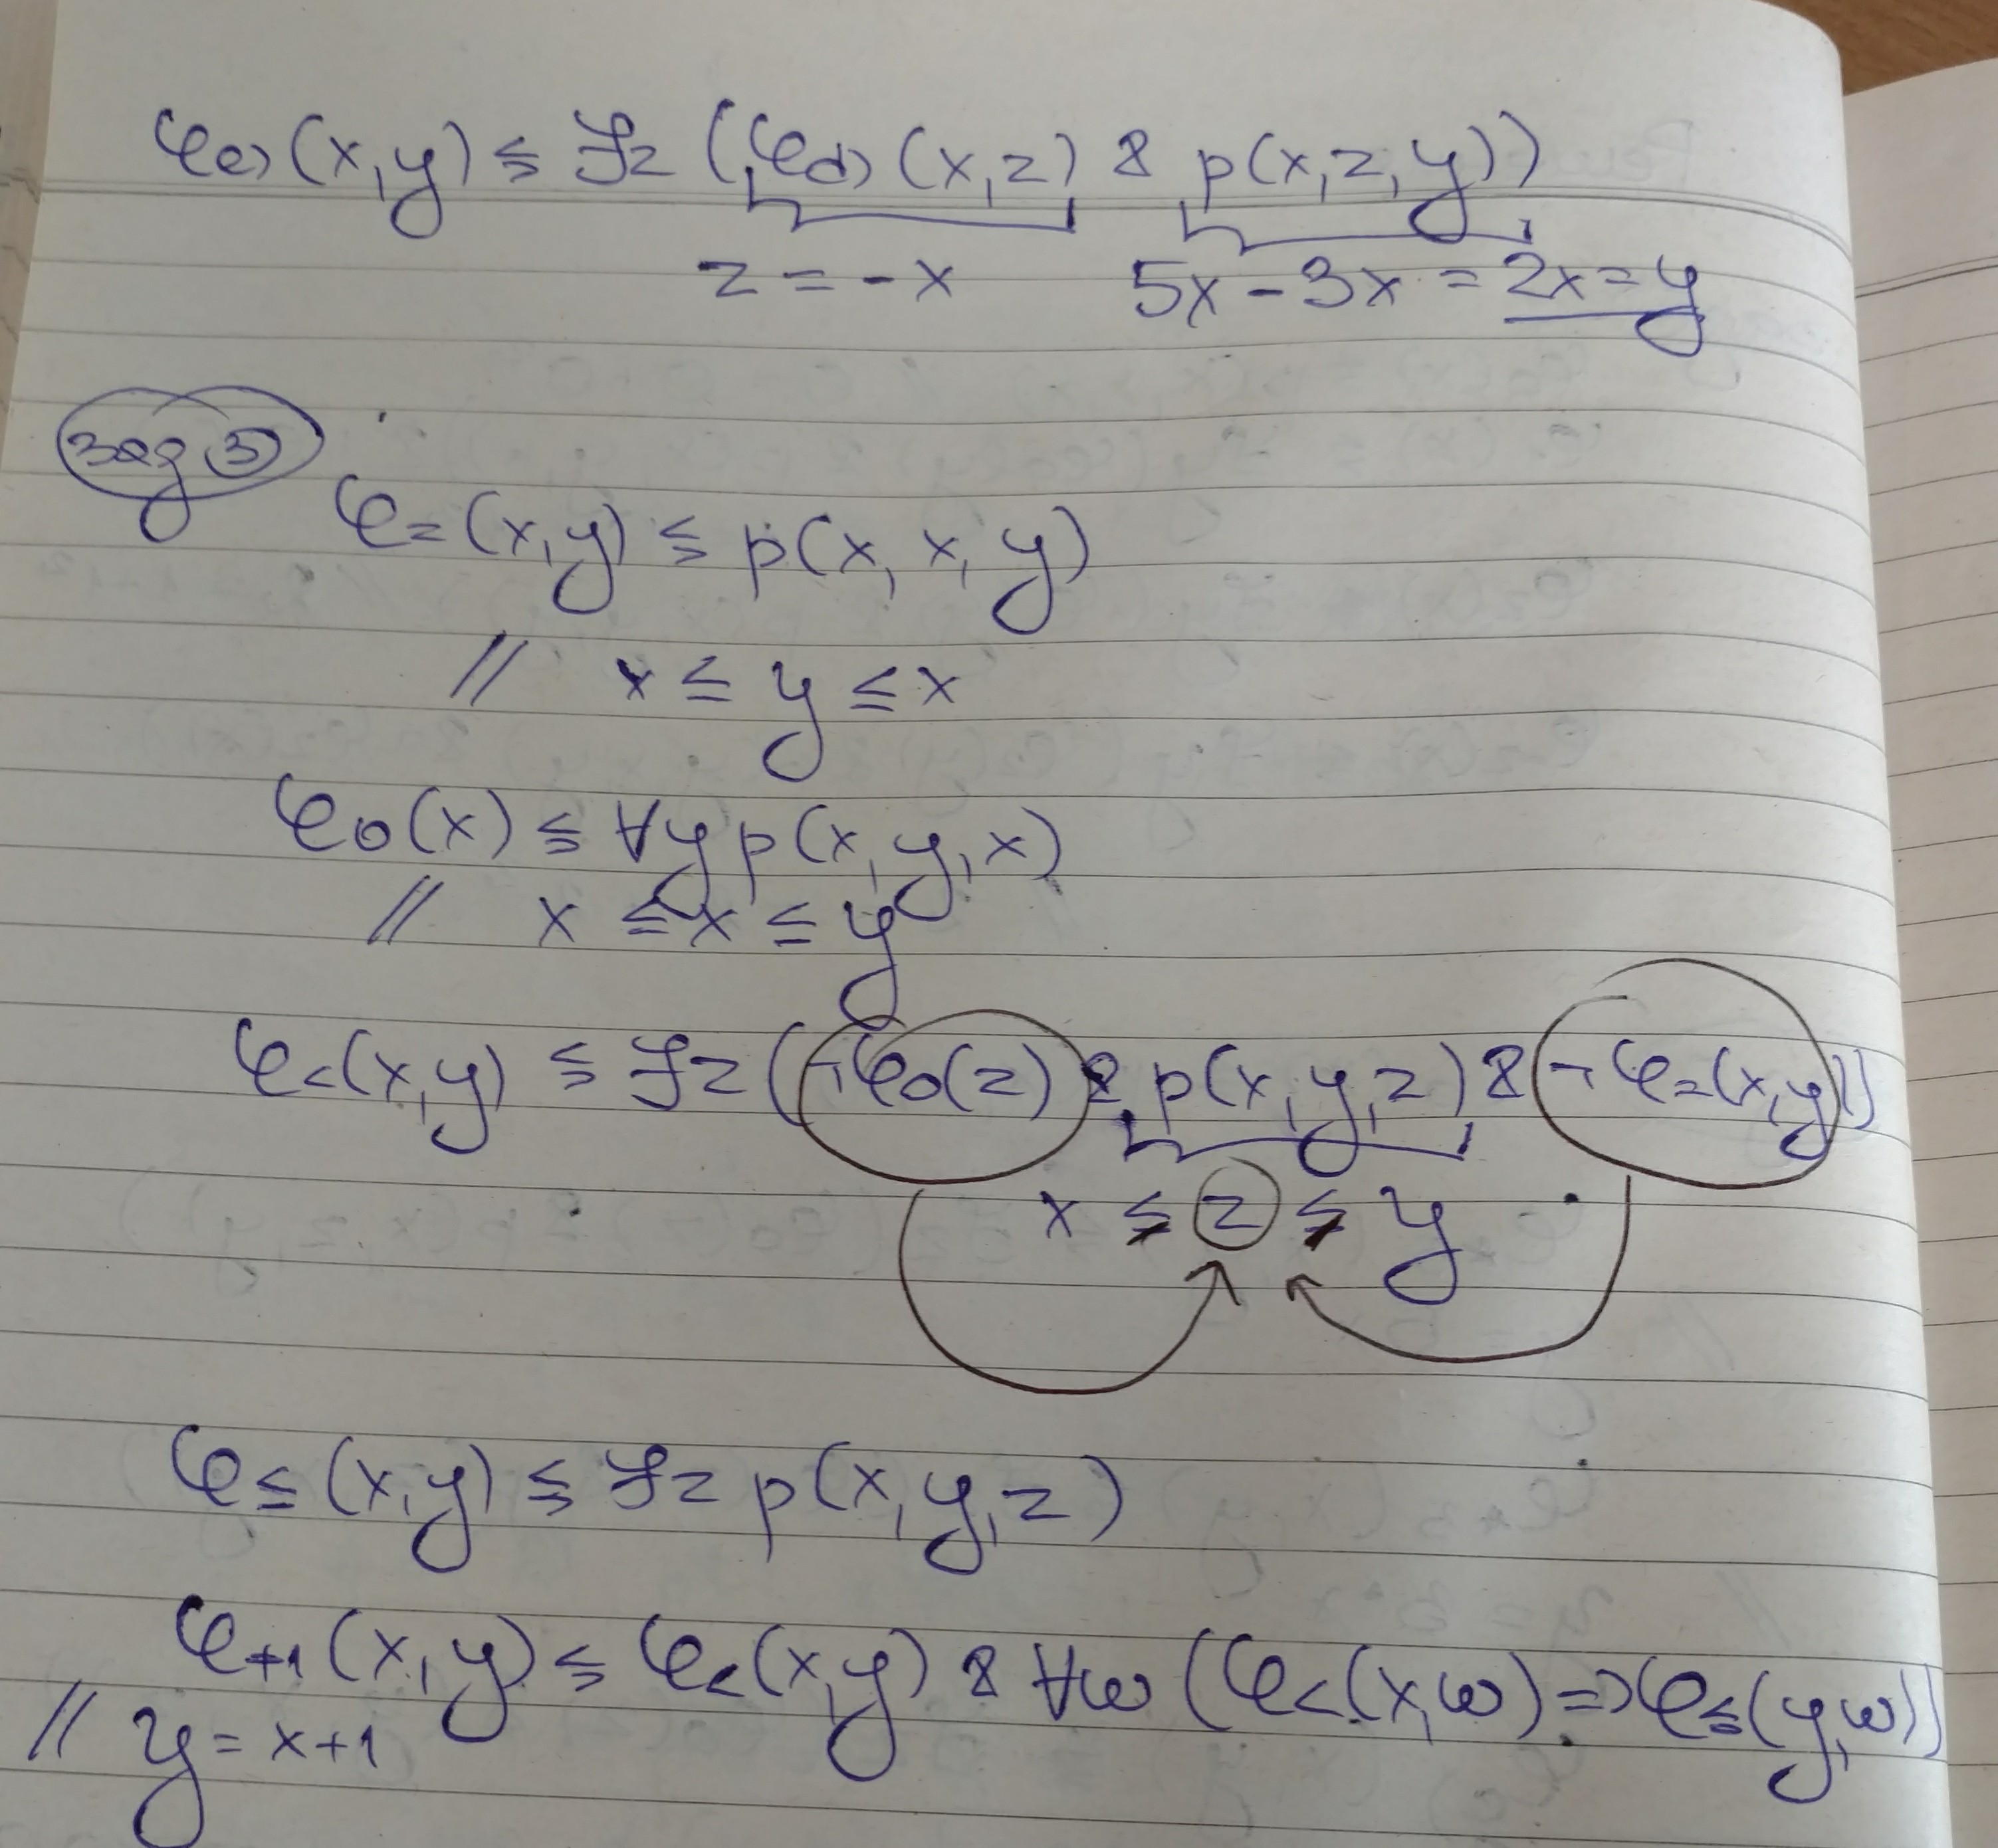 φe)(x,y) ≤ ∃z (φd)(x,z) & p(x,z,y))
z = -x 5x - 3x = 2x = y
Зад 3
φ=(x,y) ≤ p(x, x, y)
// x ≤ y ≤ x
φ0(x) ≤ ∀y p(x, y, x)
// x ≤ x ≤ y
φ<(x,y) ≤ ∃z (¬φ0(z) & p(x,y,z) & ¬φ=(x,y))
x ≤ z ≤ y
φ≤(x,y) ≤ ∃z p(x,y,z)
φ+1(x,y) ≤ φ<(x,y) & ∀ω (φ<(x,ω) => φ≤(y,ω))
// y = x+1